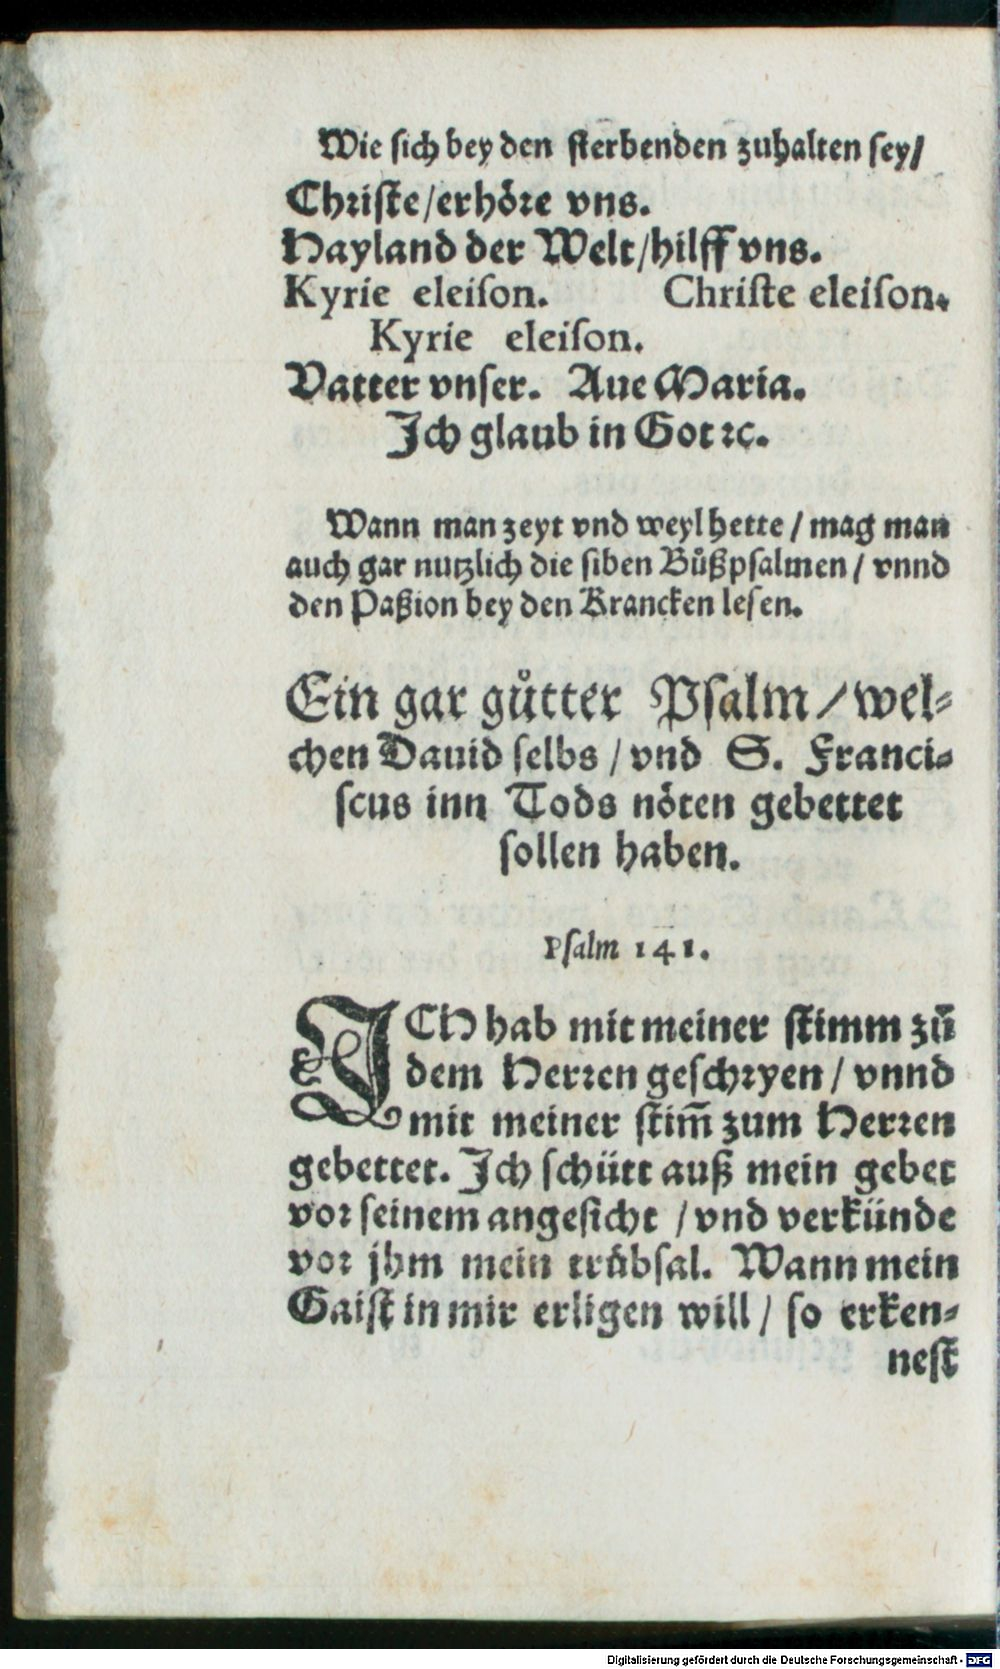 Wie sich bey den sterbenden zuhalten sey/
Christe/erhöre vns.
Hayland der Welt/hilff vns.
Kyrie eleiſon. Christe eleiſon.
Kyrie eleiſon.
Vatter vnser. Aue Maria.
Jch glaub in Got ꝛc.
Wann man zeyt vnd weyl hette / mag man
auch gar nutzlich die siben Bůßpsalmen / vnnd
den Paßion bey den Krancken lesen.
Ein gar gůtter Psalm / wel-
chen Dauid selbs / vnd S. Franci-
scus inn Tods nöten gebettet
sollen haben.
Psalm 141.
JCH hab mit meiner stimm zů
dem Herren geschryen / vnnd
mit meiner stim̄ zum Herren
gebettet. Jch schütt auß mein gebet
vor seinem angesicht / vnd verkünde
vor jhm mein trübsal. Wann mein
Gaist in mir erligen will / so erken-
nest
Digitalisierung gefördert durch die Deutsche Forschungsgemeinschaft - DFG